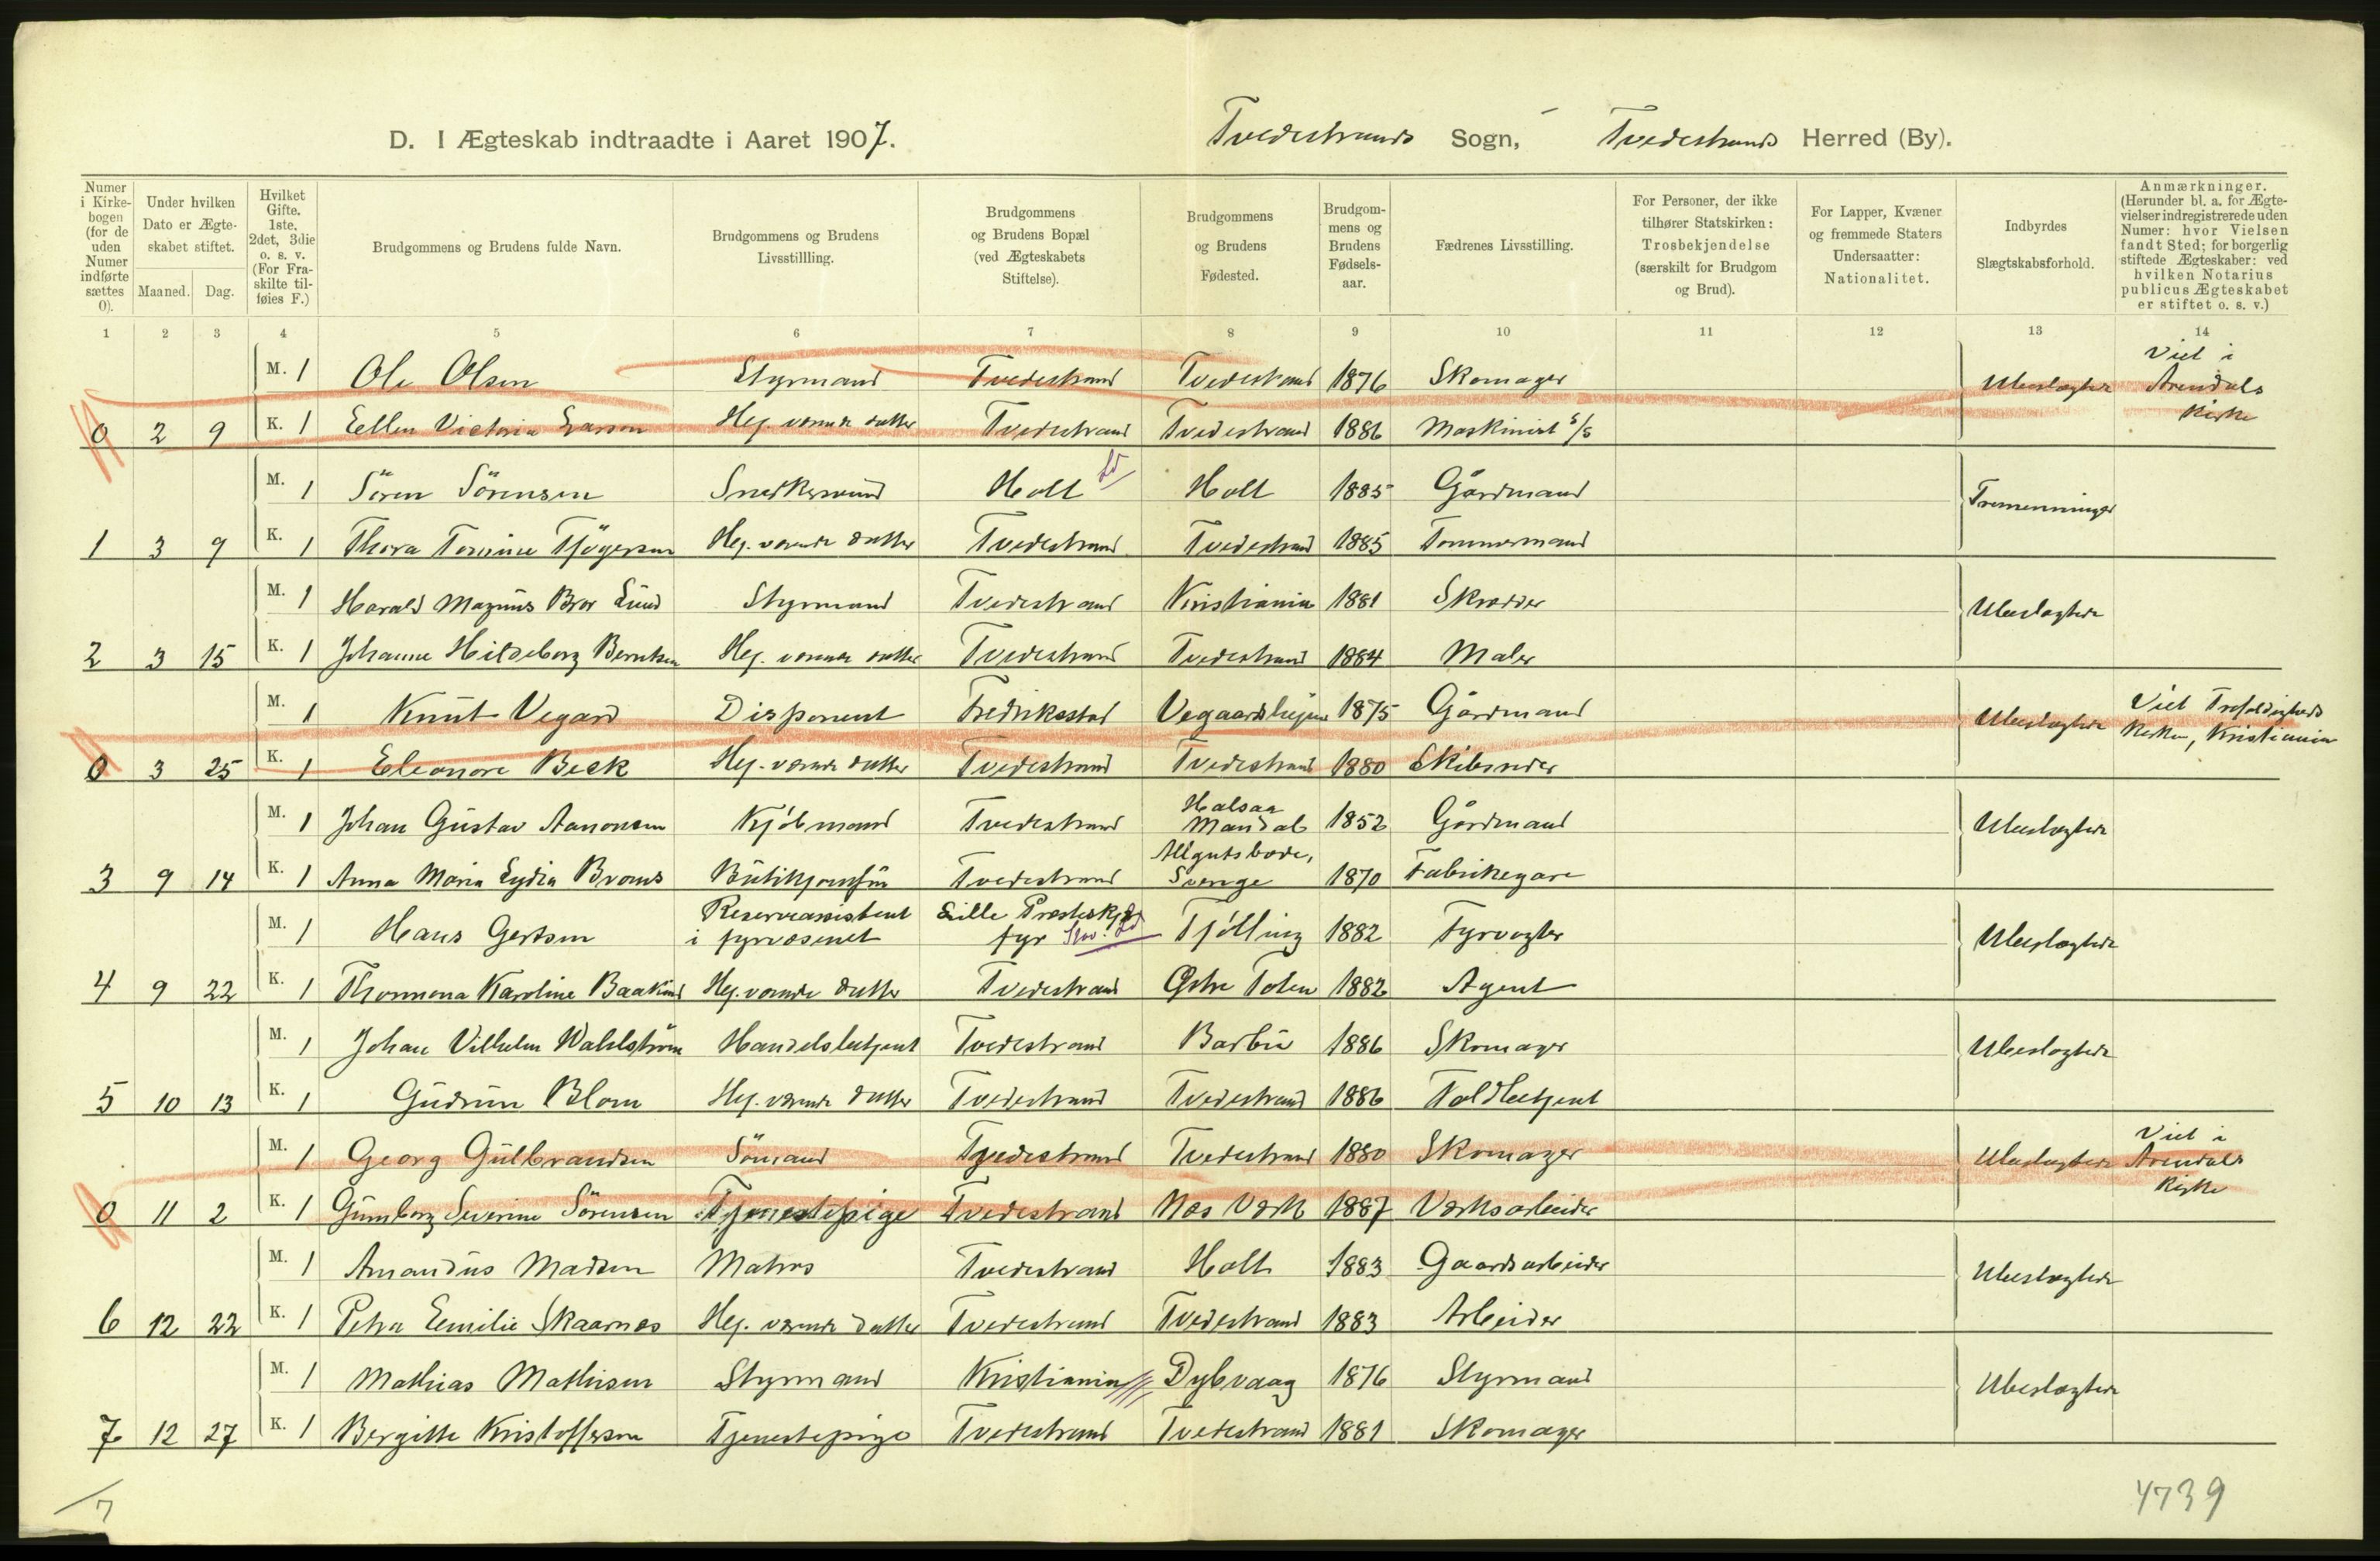 D. I Ægteskab indtraadte i Aaret 1907. Tvedestrands Sogn, Tvedestrands Herred (By).
Numer i Kirke-bogen (for de uden Numer indførte sættes 0).
Under hvilken Dato er Ægte-skabet stiftet.
Maaned. Dag.
Hvilket Gifte. 1ste, 2det, 3die o. s. v. (For Fra-skilte til-føies F.)
Brudgommens og Brudens fulde Navn.
Brudgommens og Brudens Livsstillling.
Brudgommens og Brudens Bopæl (ved Ægteskabets Stiftelse).
Brudgommens og Brudens Fødested.
Brudgom-mens og Brudens Fødsels-aar.
Fædrenes Livsstilling.
For Personer, der ikke tilhører Statskirken: Trosbekjendelse (særskilt for Brudgom og Brud).
For Lapper, Kvæner og fremmede Staters Undersaatter: Nationalitet.
Indbyrdes Slægtskabsforhold.
Anmærkninger. (Herunder bl. a. for Ægte-vielser indregistrerede uden Numer: hvor Vielsen fandt Sted; for borgerlig stiftede Ægteskaber: ved hvilken Notarius publicus Ægteskabet er stiftet o. s. v.)
1 2 3 4 5 6 7 8 9 10 11 12 13 14
M. 1 Ole Olsen Styrmand Tvedestrand Tvedestrand 1876 Skomager Ubeslægtede Viet i Arendals Kirke
0 2 9 K. 1 Ellen Victoria Hj. værende datter Tvedestrand Tvedestrand 1886 Maskinist S/S
M. 1 Sören Sörensen Snedkersvend Holt Ld Holt 1885 Gårdmand Tremenninger
1 3 9 K. 1 Thora Hj. værende datter Tvedestrand Tvedestrand 1885 Tømmermand
M. 1 Harald Magnus Bror Lund Styrmand Tvedestrand Kristiania 1881 Skrædder Ubeslægtede
2 3 15 K. 1 Johanne Hildeborg Berntsen Hj. værende datter Tvedestrand Tvedestrand 1884 Maler
M. 1 Knut Vegard Disponent Fredrikstad Vegaardshejen 1875 Gårdmand Ubeslægtede Viet Trefoldigheds Kirken, Kristiania
0 3 25 K. 1 Eleonore Beck Hj. værende datter Tvedestrand Tvedestrand 1880 Skibsreder
M. 1 Johan Gustav Aanonsen Kjöbmand Tvedestrand Halsaa Mandal 1852 Gårdmand Ubeslægtede
3 9 14 K. 1 Anna Maria Lydia Broms Butikjomfru Tvedestrand Sverige 1870 Fabrikegare
M. 1 Hans Gertsen Reserveassistent i fyrvæsenet Lille Presteskjær fyr Ld Tjölling 1882 Fyrvogter Ubeslægtede
4 9 22 K. 1 Karoline Hj. værende datter Tvedestrand Østre Toten 1882 Agent
M. 1 Johan Vilhelm Wahlström Handelsbetjent Tvedestrand Barbu 1886 Skomager Ubeslægtede
5 10 13 K. 1 Gudrun Blom Hj. værende datter Tvedestrand Tvedestrand 1886 Toldbetjent
M. 1 Georg Gulbrandsen Sömand Tvedestrand Tvedestrand 1880 Skomager Ubeslægtede Viet i Arendals Kirke
0 11 2 K. 1 Gunborg Severine Sörensen Tjenestepige Tvedestrand Næs Værk 1887 Værksarbeider
M. 1 Amandus Madsen Matros Tvedestrand Holt 1883 Gaardsarbeider Ubeslægtede
6 12 22 K. 1 Petra Emilie Skaarnes Hj. værende datter Tvedestrand Tvedestrand 1883 Arbeider
M. 1 Mathias Mathisen Styrmand Kristiania Dybvaag 1876 Styrmand Ubeslægtede
7 12 27 K. 1 Bergitte Kristoffersen Tjenestepige Tvedestrand Tvedestrand 1881 Skomager
7 4739